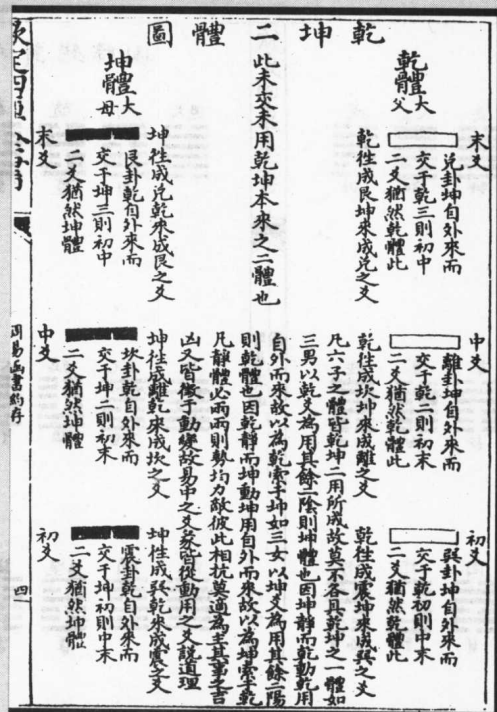 乾坤二體圖
乾體大父
末爻
兌卦坤自外來而
交于乾三則初中
二爻猶然乾體此
乾徃成艮坤來成兌之爻
中爻
離卦坤自外來而
交于乾二則初末
二爻猶然乾體此
乾徃成坎坤來成離之爻
初爻
巽卦坤自外來而
交于乾初則中末
二爻猶然乾體此
乾徃成震坤來成巽之爻
此未交未用乾坤本來之二體也
凡六子之體皆乾坤二用所成故莫不各具乾坤之一體如
三男以乾爻為用其餘二陰則坤體也因坤靜而乾動乾用
自外而來故以為乾索于坤如三女以坤爻為用其餘二陽
則乾體也因乾靜而坤動坤用自外而來故以為坤索于乾
凡靜體必兩兩則勢均力敵彼此相抗莫適為主其事之吉
凶又皆徵于動變故易中之爻彖皆從動用之爻說道理
坤體大母
坤徃成兌乾來成艮之爻
末爻
艮卦乾自外來而
交于坤三則初中
二爻猶然坤體
坤徃成離乾來成坎之爻
中爻
坎卦乾自外來而
交于坤二則初末
二爻猶然坤體
坤徃成巽乾來成震之爻
初爻
震卦乾自外來而
交于坤初則中末
二爻猶然坤體
欽定四庫全書
周易函書約存
四